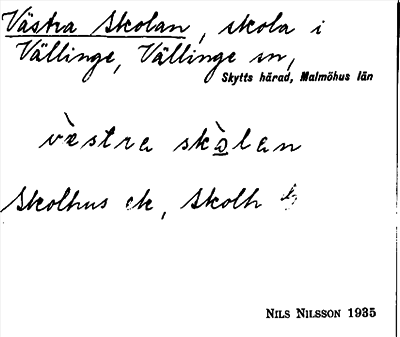 Västra Skolan, skola i
Vällinge, Vällinge sn,
Skytts härad, Malmöhus län
västra skolan
Skolhus ek, Skolh
NILS NILSSON 1935